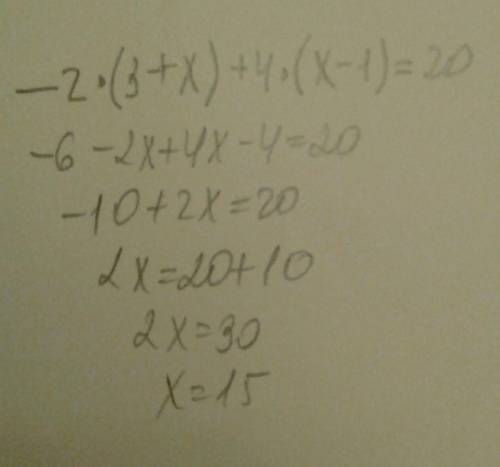 -2·(3+x)+4·(x-1)=20
-6-2x+4x-4=20
-10+2x=20
2x=20+10
2x=30
x=15